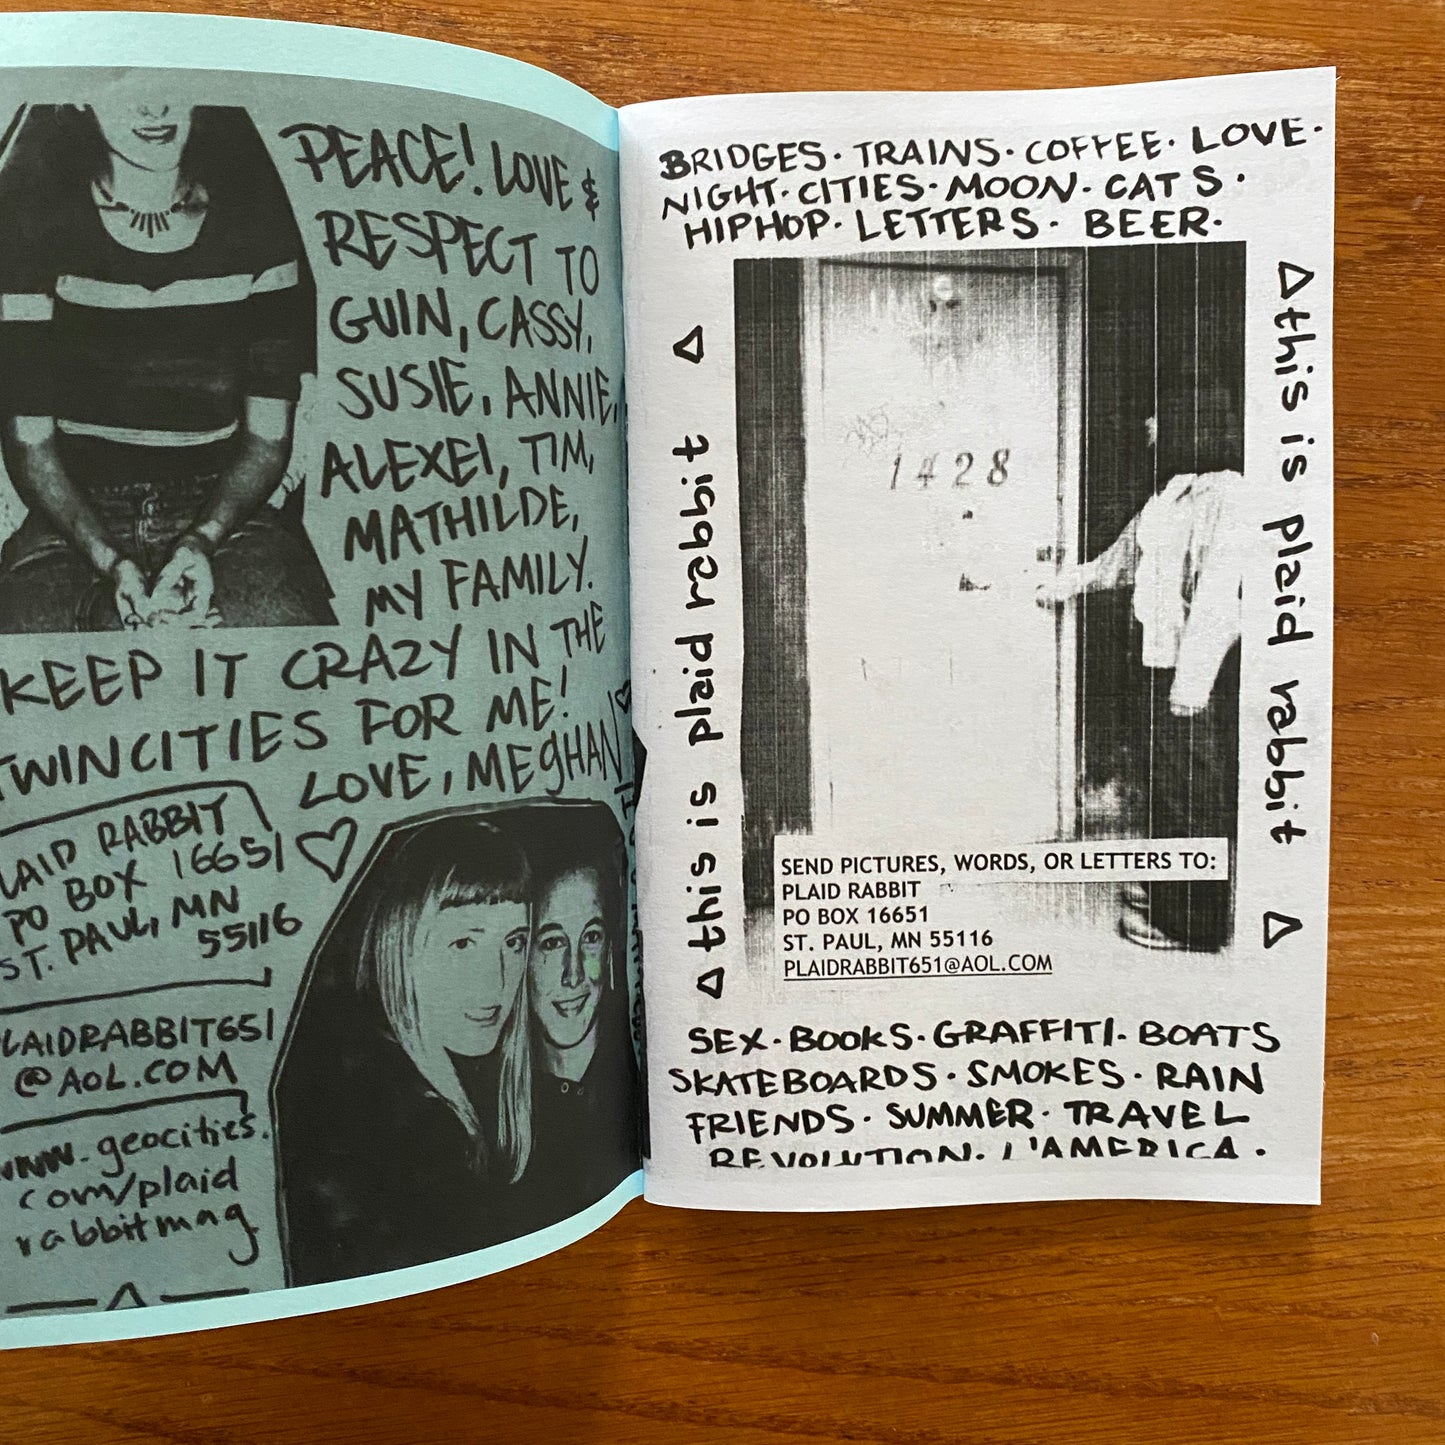 PEACE! LOVE &
RESPECT TO
GUIN, CASSY,
SUSIE, ANNIE,
ALEXEI, TIM,
MATHILDE,
MY FAMILY.
KEEP IT CRAZY IN THE
TWINCITIES FOR ME!
LOVE, MEGHAN
LAID RABBIT
PO BOX 16651
ST. PAUL, MN
55116
LAIDRABBIT651
@AOL.COM
www.geocities.
com/plaid
rabbitmag
BRIDGES · TRAINS · COFFEE · LOVE ·
NIGHT · CITIES · MOON · CATS ·
HIPHOP · LETTERS · BEER ·
this is plaid rabbit
1428
this is plaid rabbit
SEND PICTURES, WORDS, OR LETTERS TO:
PLAID RABBIT
PO BOX 16651
ST. PAUL, MN 55116
PLAIDRABBIT651@AOL.COM
SEX · BOOKS · GRAFFITI · BOATS
SKATEBOARDS · SMOKES · RAIN
FRIENDS · SUMMER · TRAVEL
REVOLUTION · L'AMERICA ·